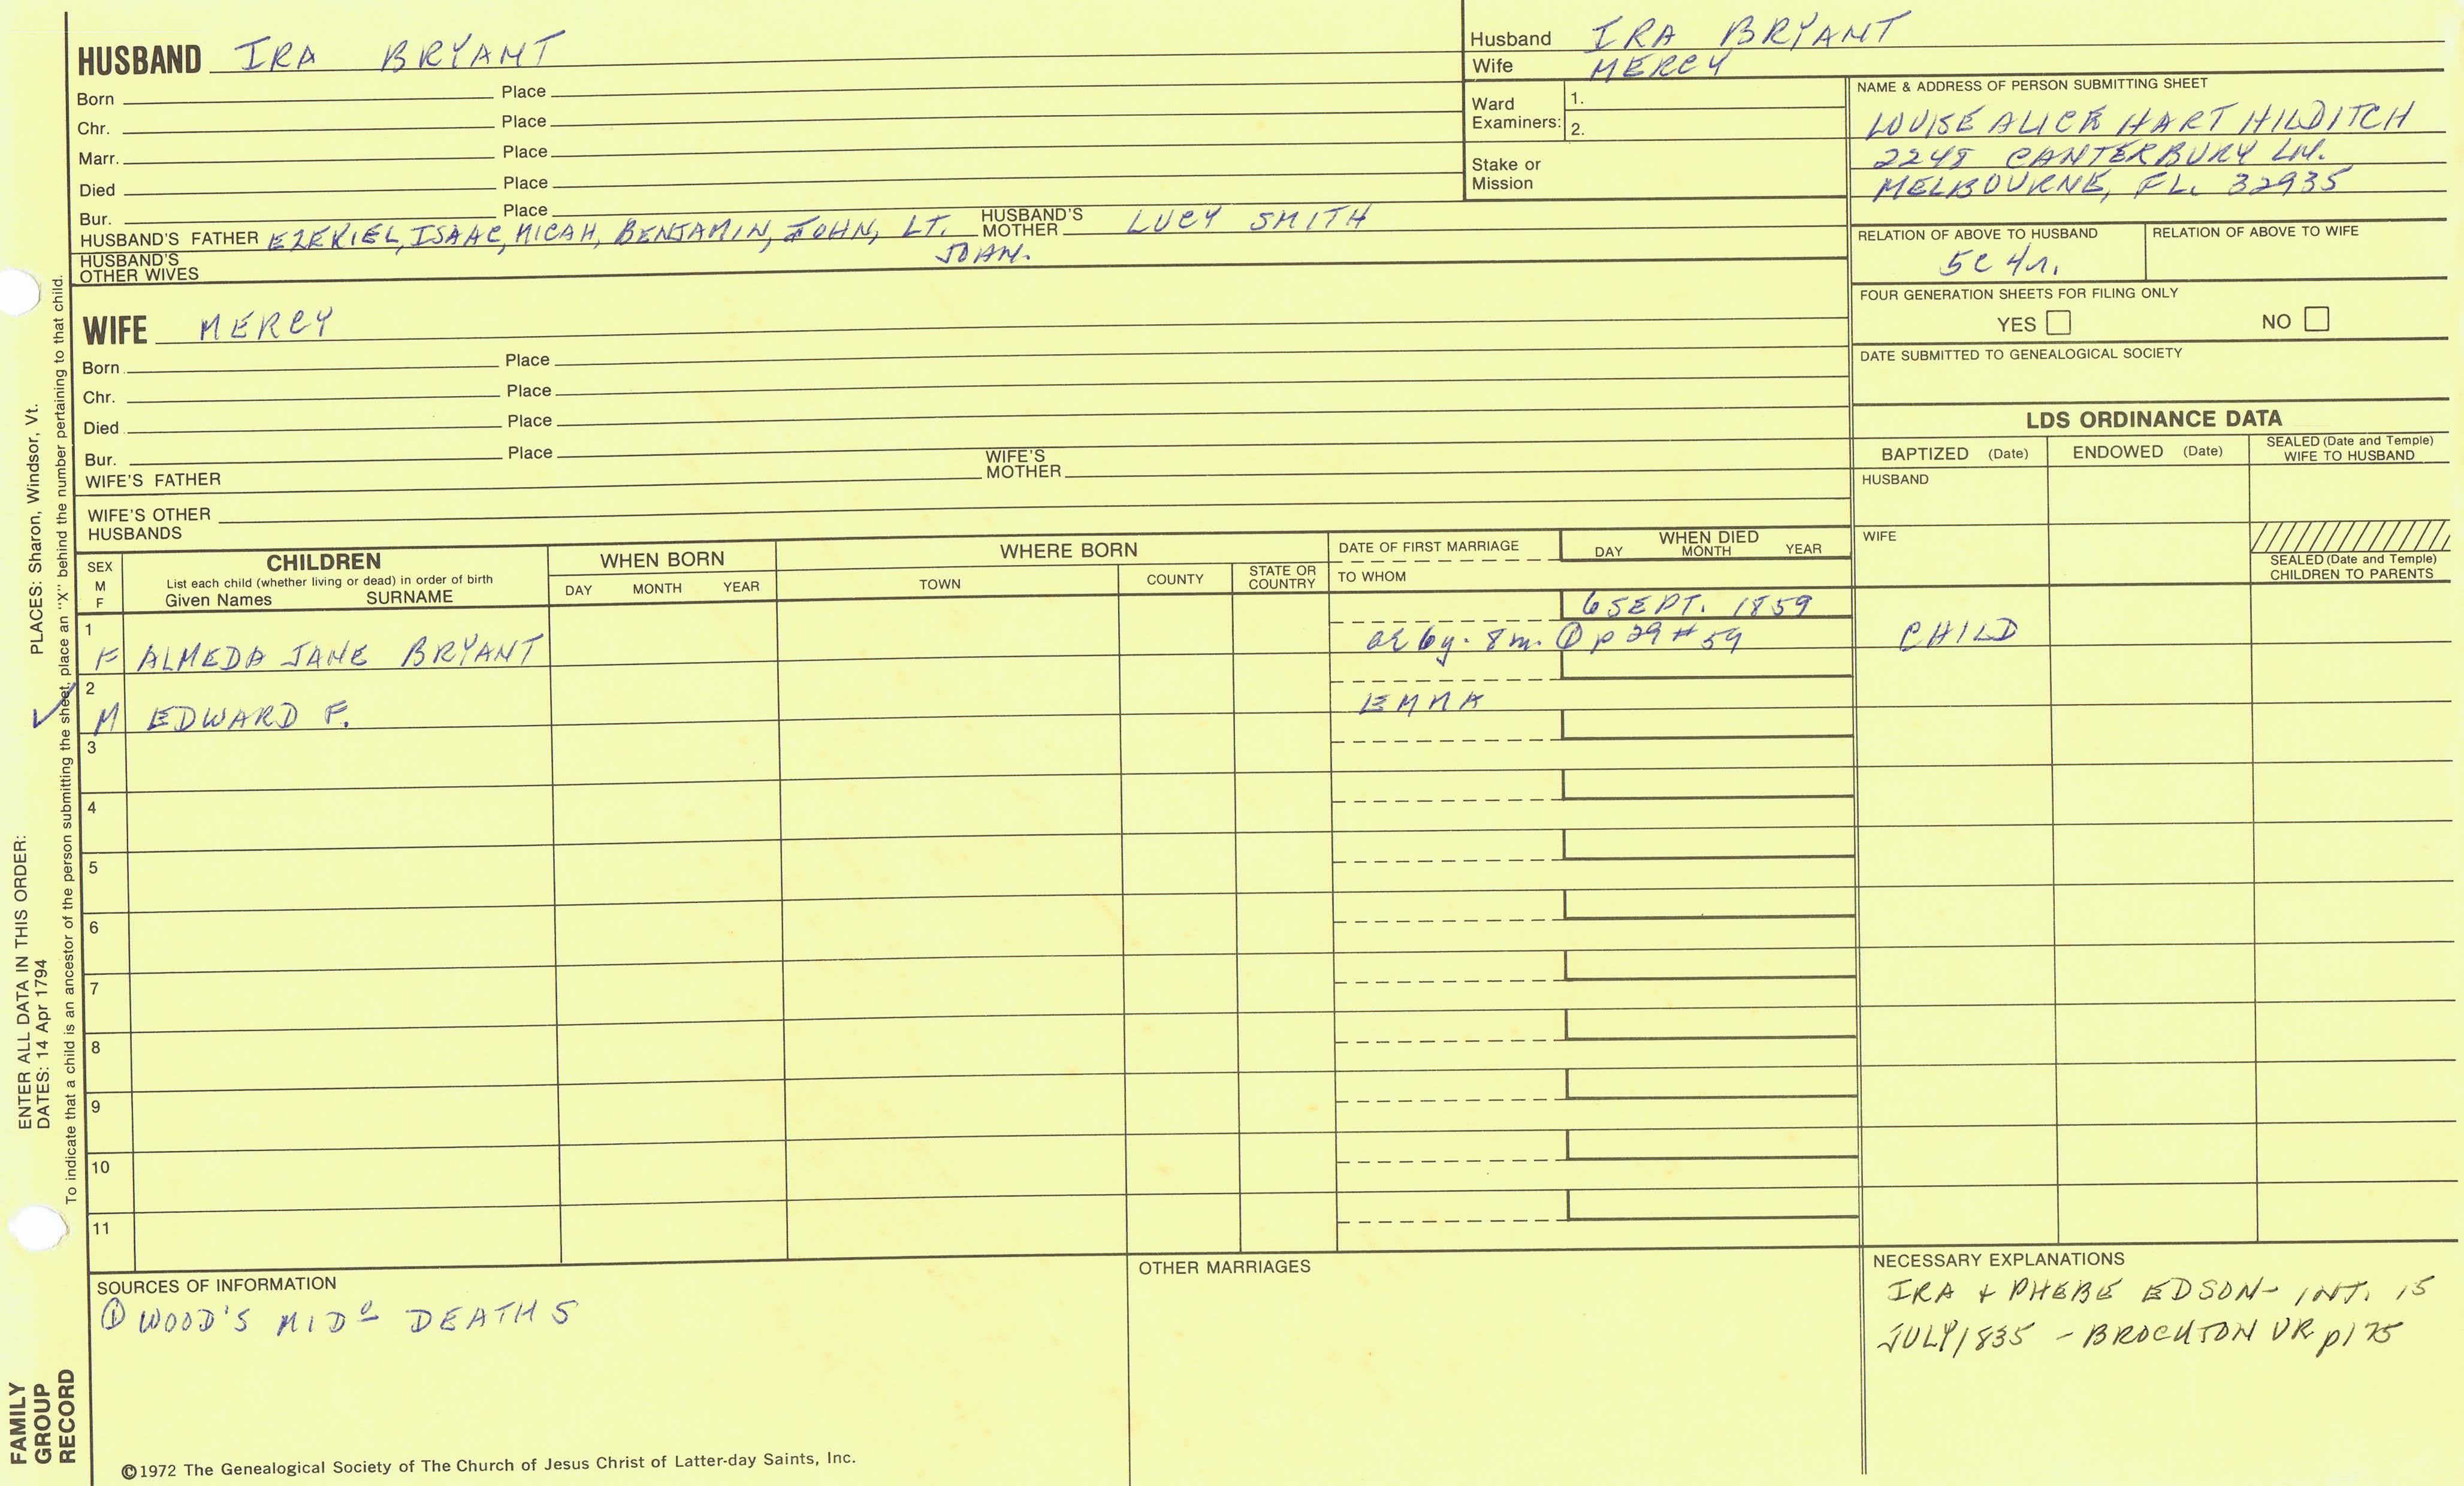 HUSBAND IRA BRYANT
Born Place
Chr. Place
Marr. Place
Died Place
Bur. Place
HUSBAND'S FATHER EZEKIEL, ISAAC, MICAH, BENJAMIN, JOHN, LT. HUSBAND'S MOTHER LUCY SMITH
JOHN.
HUSBAND'S OTHER WIVES
Husband IRA BRYANT
Wife MERCY
Ward Examiners: 1.
2.
Stake or Mission
NAME & ADDRESS OF PERSON SUBMITTING SHEET
LOUISE ALICE HART HILDITCH
2248 CANTERBURY LN.
MELBOURNE, FL. 32935
RELATION OF ABOVE TO HUSBAND RELATION OF ABOVE TO WIFE
5C 4r.
FOUR GENERATION SHEETS FOR FILING ONLY
YES NO
DATE SUBMITTED TO GENEALOGICAL SOCIETY
WIFE MERCY
Born Place
Chr. Place
Died Place
Bur. Place
WIFE'S FATHER WIFE'S MOTHER
WIFE'S OTHER HUSBANDS
LDS ORDINANCE DATA
BAPTIZED (Date) ENDOWED (Date) SEALED (Date and Temple) WIFE TO HUSBAND
HUSBAND
WIFE
SEALED (Date and Temple) CHILDREN TO PARENTS
SEX M F CHILDREN WHEN BORN WHERE BORN DATE OF FIRST MARRIAGE WHEN DIED
List each child (whether living or dead) in order of birth
Given Names SURNAME DAY MONTH YEAR TOWN COUNTY STATE OR COUNTRY TO WHOM DAY MONTH YEAR
6 SEPT. 1859
1 F ALMEDA JANE BRYANT ae 6y. 8m. ① p 29 # 59 CHILD
2 M EDWARD F. EMMA
3
4
5
6
7
8
9
10
11
SOURCES OF INFORMATION
① WOOD'S MIDo DEATHS
OTHER MARRIAGES
NECESSARY EXPLANATIONS
IRA + PHEBE EDSON - INT. 15
JULY 1835 - BROCKTON VR p175
©1972 The Genealogical Society of The Church of Jesus Christ of Latter-day Saints, Inc.
FAMILY GROUP RECORD
ENTER ALL DATA IN THIS ORDER:
DATES: 14 Apr 1794 PLACES: Sharon, Windsor, Vt.
To indicate that a child is an ancestor of the person submitting the sheet, place an "X" behind the number pertaining to that child.